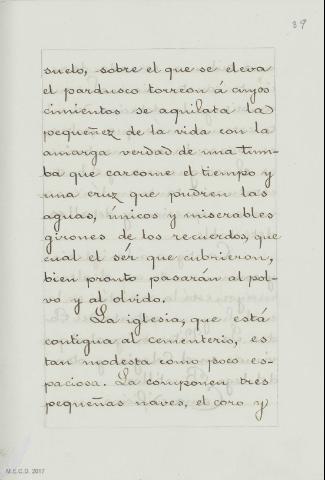 39
suelo, sobre el que se eleva
el pardusco torreon á cuyos
cimientos se aquilata la
pequeñez de la vida con la
amarga verdad de una tum-
ba que carcome el tiempo y
una cruz que pudren las
aguas, únicos y miserables
girones de los recuerdos, que
cual el sér que cubrieron,
bien pronto pasarán al pol-
vo y al olvido.
La iglesia, que está
contigua al cementerio, es
tan modesta como poco es-
paciosa. La componen tres
pequeñas naves, el coro y
M.E.C.D. 2017